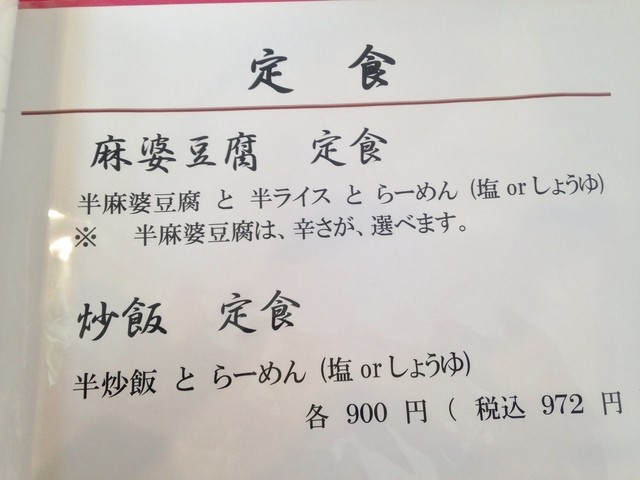 定 食
麻婆豆腐 定食
半麻婆豆腐 と 半ライス と らーめん (塩 or しょうゆ)
※ 半麻婆豆腐は、辛さが、選べます。
炒飯 定食
半炒飯 と らーめん (塩 or しょうゆ)
各 900 円 ( 税込 972 円